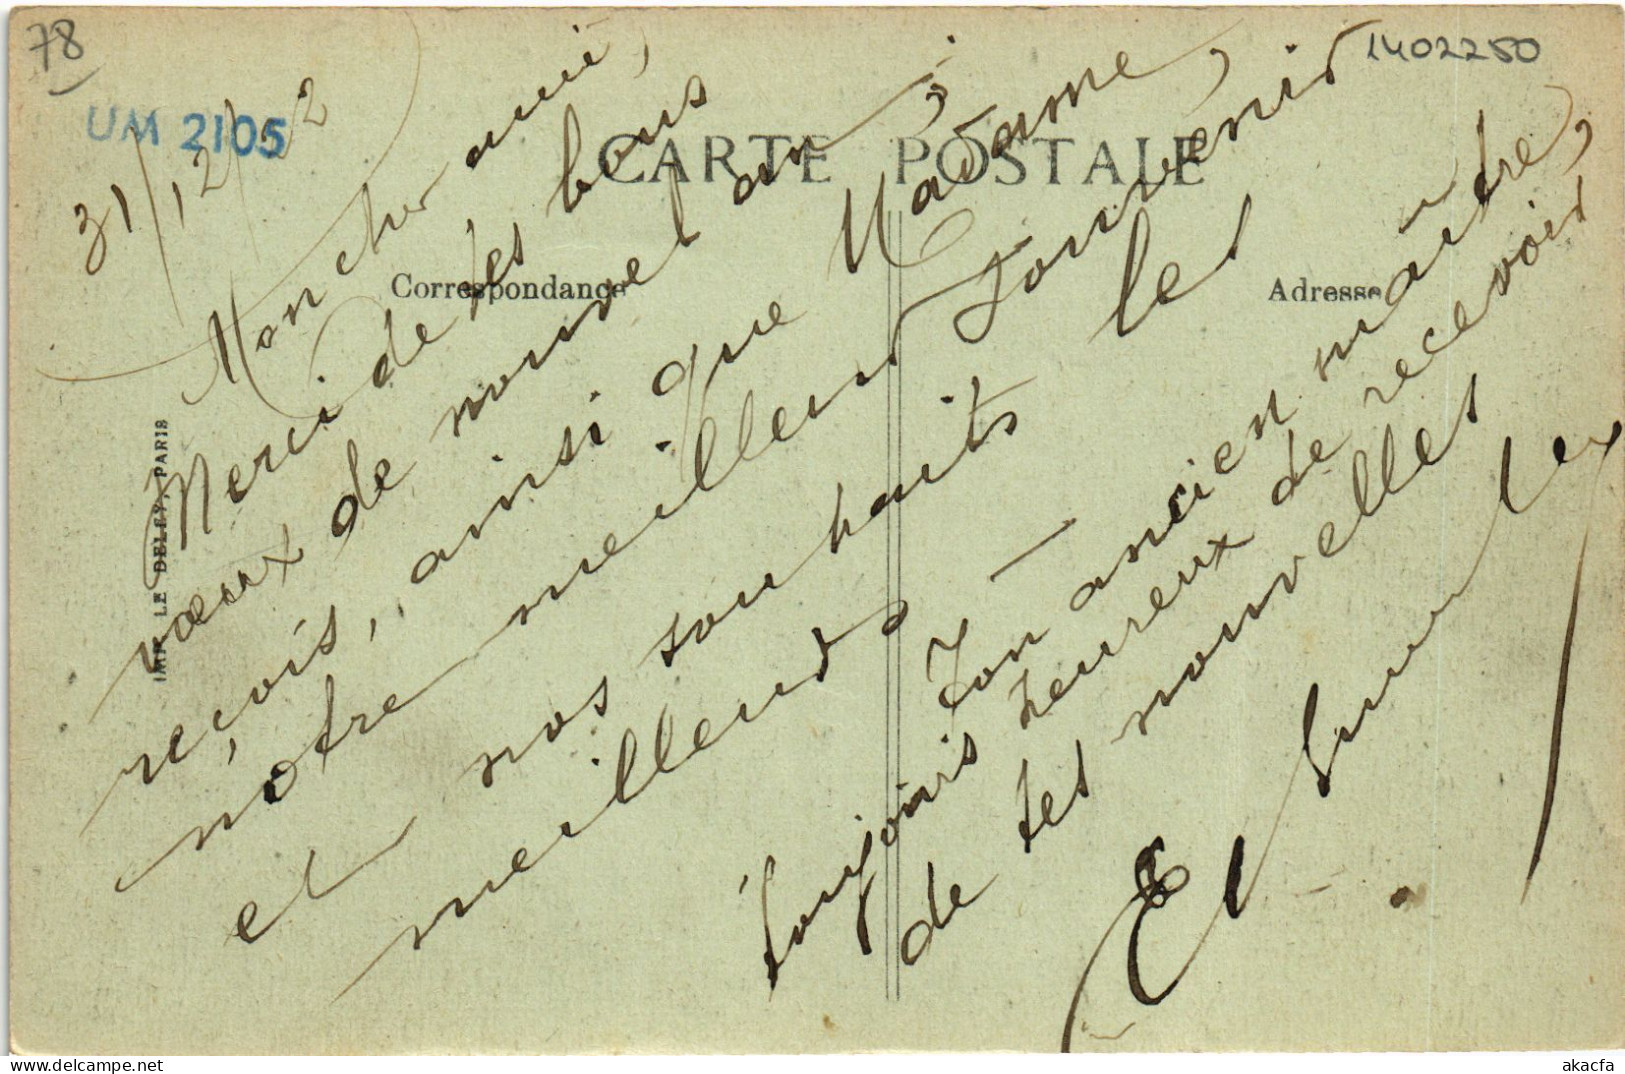 78
1402250
UM 2105
31/12/22
CARTE POSTALE
Correspondance
Adresse
IMP. LE DELEY, PARIS
Mon cher ami,
Merci de tes bons
vœux de nouvel an ;
reçois, ainsi que Madame,
notre meilleur souvenir
et nos souhaits les
meilleurs —
Ton ancien maître,
toujours heureux de recevoir
de tes nouvelles
akacfa